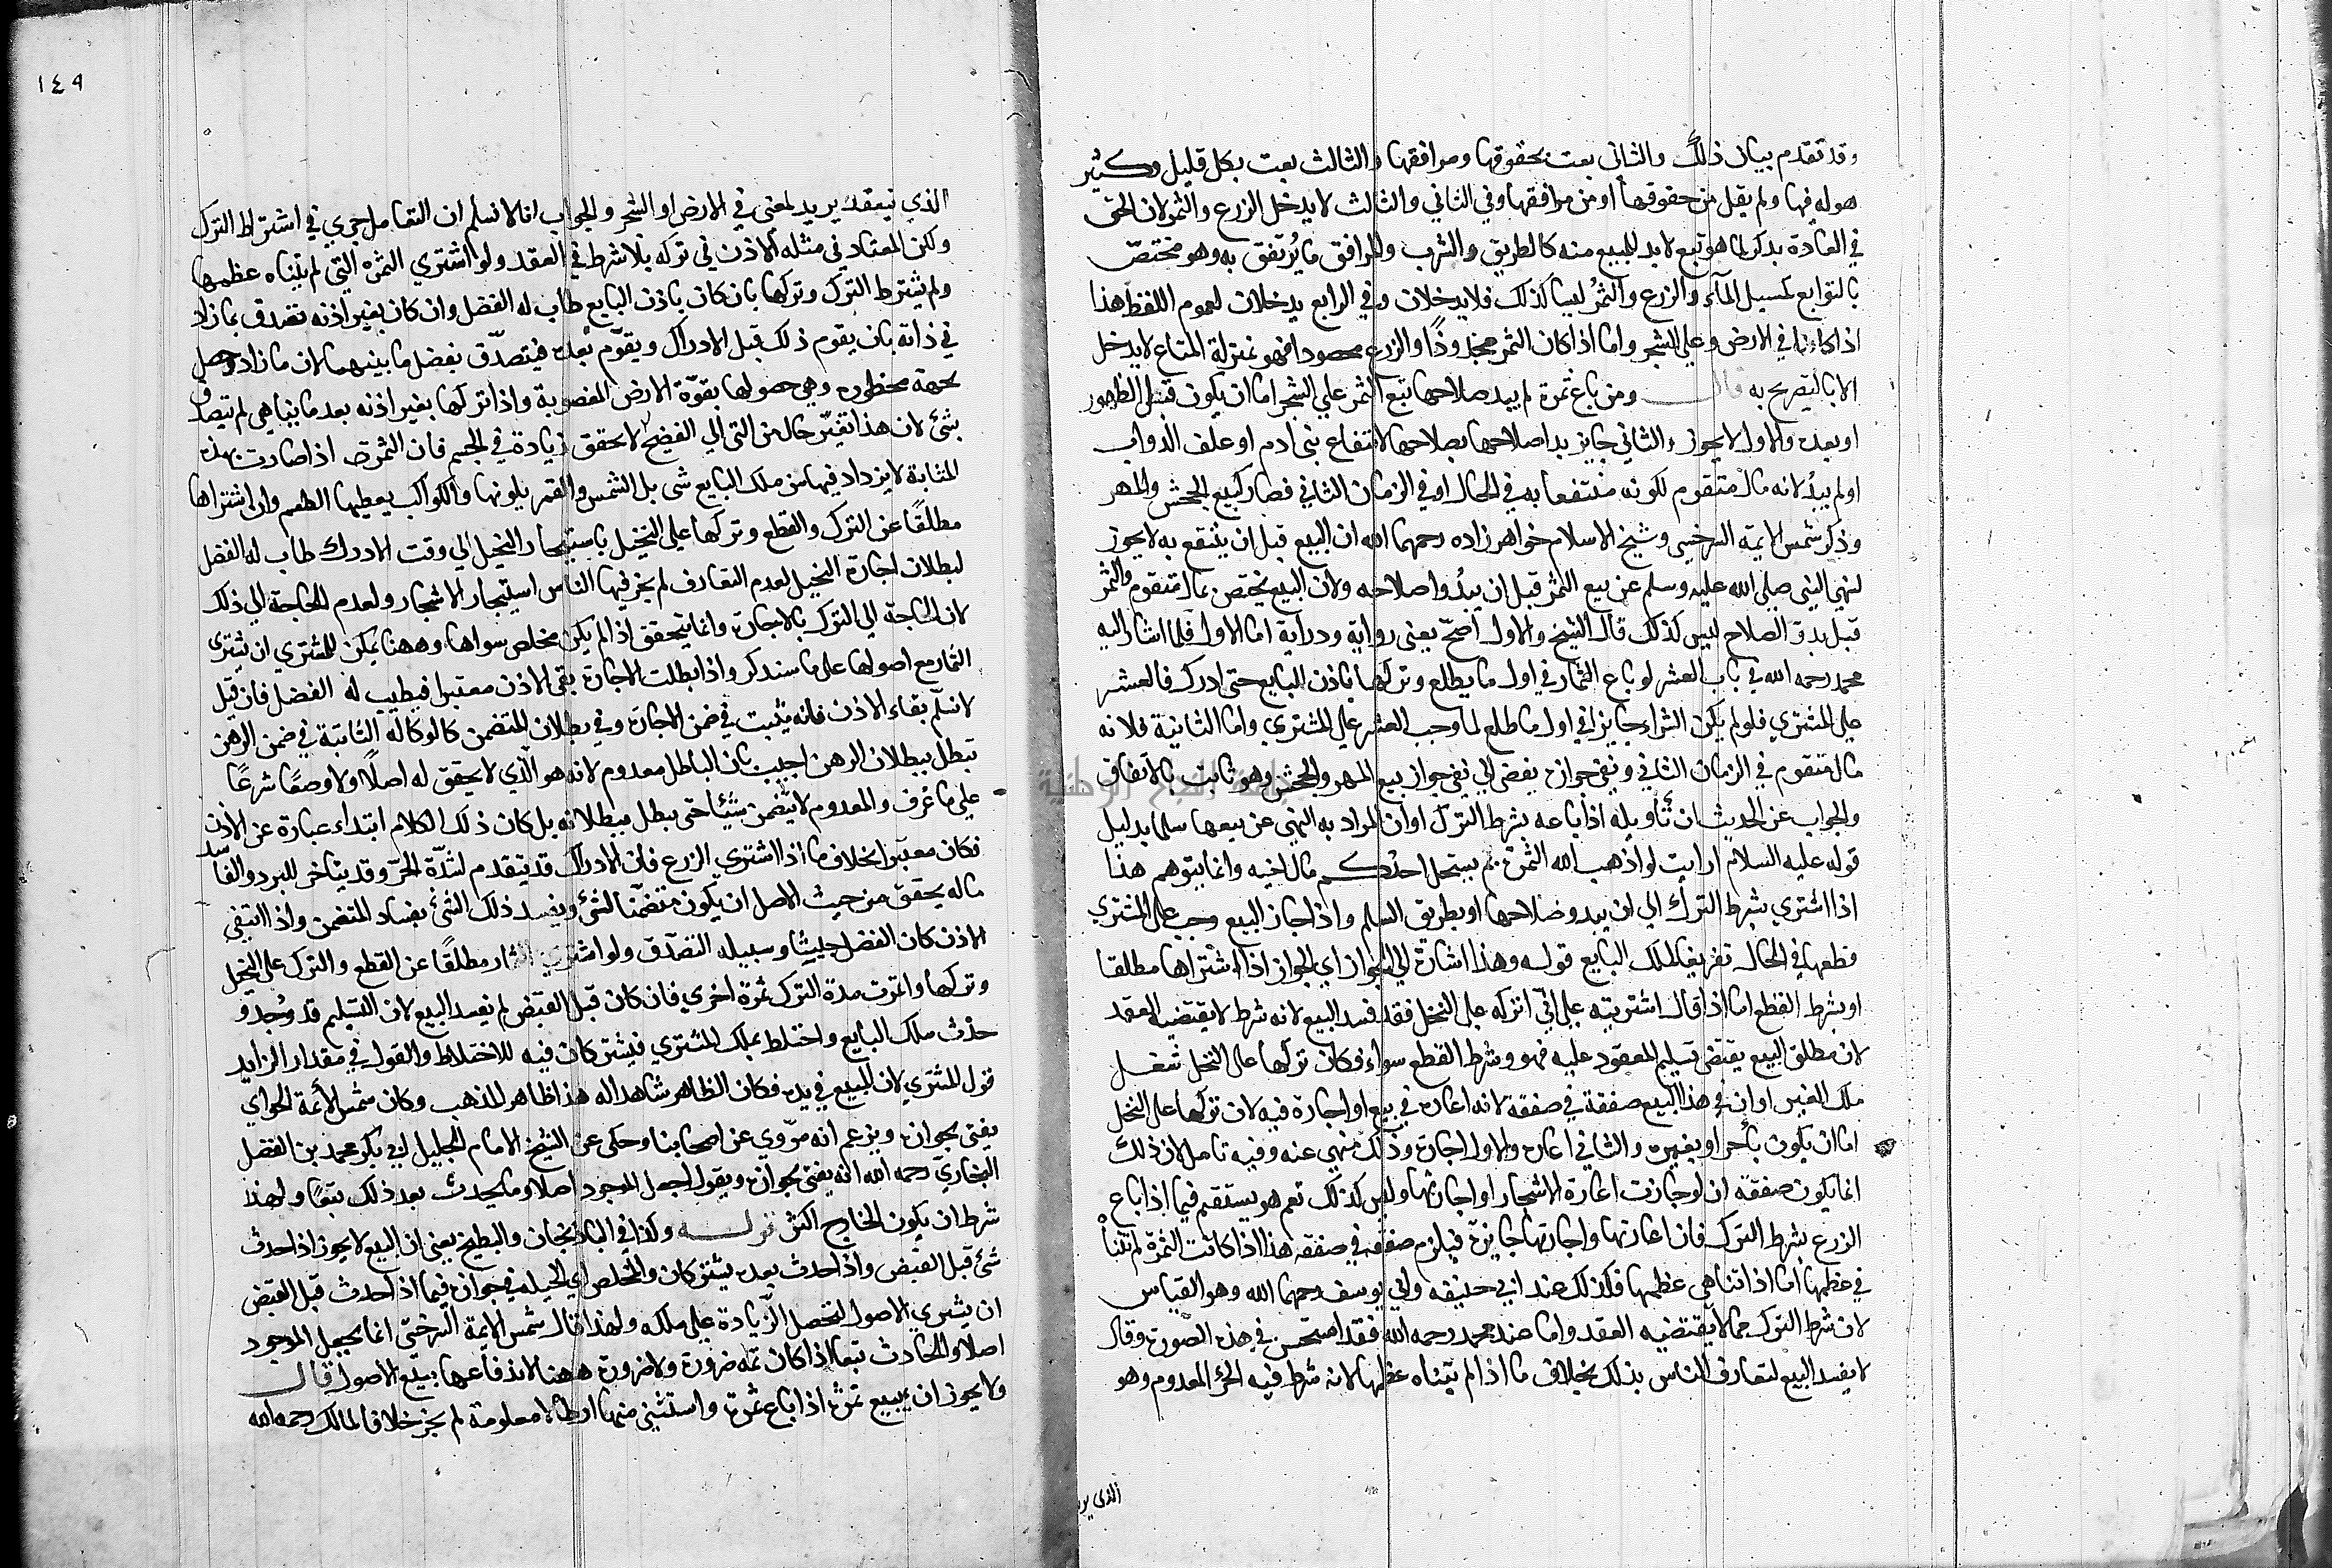 وقد تقدم بيان ذلك والثاني بعت بحقوقها ومرافقها والثالث بعت بكل قليل وكثير
هو له فيها ولم يقل من حقوقها او من مرافقها وفي الثاني والثالث لا يدخل الزرع والثمر لان الحق
في العادة يذكر لما هو تبع لا بد للمبيع منه كالطريق والشرب والمرافق ما يُرتفق به وهو مختصّ
بالتوابع كمسيل المآء والزرع والثمرُ ليسا كذلك فلا يدخلان وفي الرابع يدخلان لعموم اللفظ هذا
اذا كانا في الارض وعلى الشجر واما اذا كان الثمر مجذوذًا والزرع محصودا فهو بمنزلة المتاع لا يدخل
الا بالتصريح به قال ومن باع ثمرة لم يبد صلاحها تبع الثمر على الشجر اما ان يكون قبل الظهور
او بعده والاول لا يجوز والثاني جايز بدا صلاحها بصلاحها لانتفاع بنى ادم او علف الدواب
او لم يبدُ لانه مال متقوم لكونه منتفعا به في الحال او في الزمان الثاني فصار كبيع الجحش والمهر
وذكر شمس الايمة السرخسي وشيخ الاسلام خواهر زاده رحمهما الله ان البيع قبل ان ينتفع به لا يجوز
لنهي النبي صلى الله عليه وسلم عن بيع الثمر قبل ان يبدُوا صلاحه ولان البيع يختص بمال متقوم والثمر
قبل بدوّ الصلاح ليس كذلك قال الشيخ والاول اصحّ يعنى رواية ودراية اما الاول فلما اشار اليه
محمد رحمه الله في باب العشر لو باع الثمار في اول ما يطلع وتركها باذن البايع حتى ادرك فالعشر
على المشتري فلو لم يكن الشراء جايزا في اول ما طلع لما وجب العشر على المشتري واما الثانية فلانه
مال متقوم في الزمان الثاني ونفي جوازه يفضى الى نفي جواز بيع المهر والجحش وهو ثابت بالاتفاق
والجواب عن الحديث ان تأويله اذا باعه بشرط الترك او ان المراد به النهى عن بيعها سلما بدليل
قوله عليه السلام ارايت لو اذهب الله الثمرة بم يستحل احدكم مال اخيه وانما يتوهم هذا
اذا اشتري بشرط الترك الى ان يبدو صلاحها او بطريق السلم واذا جاز البيع وجب على المشتري
قطعها في الحال تفريغا لملك البايع قوله وهذا اشارة الى الجواز اي الجواز اذا اشتراها مطلقا
او بشرط القطع اما اذا قال اشتريته على انّي اتركه على النخل فقد فسد البيع لانه شرط لا يقتضيه العقد
لان مطلق البيع يقتضي تسليم المعقود عليه فهو وشرط القطع سواء فكان تركها على النخل شغل
ملك الغير او ان في هذا البيع صفقة في صفقة لانه اعارة في بيع او اجارة فيه لان تركها على النخل
اما ان يكون بأجر او بغيره والثاني اعارة والاول اجارة وذلك منهى عنه وفيه تامل لان ذلك
انما يكون صفقة ان لو جازت اعارة الاشجار او اجارتها وليس كذلك نعم هو يستقيم فيما اذا باع
الزرع بشرط الترك فان اعارتها واجارتها جايزة فيلزم صفقة في صفقة هذا اذا كانت الثمرة لم تتناه
في عظمها أما اذا تناهى عظمها فكذلك عند ابي حنيفه وابي يوسف رحمهما الله وهو القياس
لان شرط الترك مما لا يقتضيه العقد واما عند محمد رحمه الله فقد استحسن في هذه الصورة وقال
لا يفسد البيع لتعارف الناس بذلك بخلاف ما اذا لم يتناه عظمها لانه شرط فيه الجزء المعدوم وهو
الذي ير
١٤٩
الذي ينعقد يريد لمعنى في الارض او الشجر والجواب انا لا نسلم ان التعامل جري في اشتراط الترك
ولكن المعتاد في مثله الاذن في تركه بلا شرط في العقد ولو اشتري الثمرة التي لم يتناه عظمها
ولم يشترط الترك وتركها بان كان باذن البايع طاب له الفضل وان كان بغير اذنه تصدق بما زاد
في ذاته بان يقوم ذلك قبل الادراك ويقوّم بعده فيتصدّق بفضل ما بينهما لان ما زاد حصل
بجهة محظورة وهي حصولها بقوّة الارض المغصوبة واذا تركها بغير اذنه بعد ما يتناهى لم يتصدق
بشئ لان هذا تغيّر حال من التى الى النضيج لا تحقق زيادة في الجسم فان الثمرة اذا صارت بهذه
المثابة لا يزداد فيها من ملك البايع شى بل الشمس والقمر يلونها والكواكب يعطيها الطعم وان اشتراها
مطلقًا عن الترك والقطع وتركها على النخيل باستيجار النخيل الى وقت الادراك طاب له الفضل
لبطلان اجارة النخيل لعدم التعارف لم يجز فيها الناس استيجار الاشجار ولعدم الحاجة الى ذلك
لان الحاجة الى الترك بالاجارة وانما يتحقق اذا لم يكن مخلص سواها وههنا يمكن للمشتري ان يشترى
الثمار مع اصولها على ما سنذكر واذا بطلت الاجارة بقى الاذن معتبرا فيطيب له الفضل فان قيل
لا نسلّم بقاء الاذن فانه يثبت في ضمن الاجارة وفي بطلان المتضمن كالوكالة الثابتة في ضمن الرهن
تبطل ببطلان الرهن اجيب بان الباطل معدوم لانه هو الذي لا يحقق له اصلًا ولا وصفًا شرعًا
على ما عُرف والمعدوم لا يتضمن شيئًا حتى يبطل ببطلانه بل كان ذلك الكلام ابتداء عبارة عن الاذن
فكان معتبرا بخلاف ما اذا اشتري الزرع فان الادراك قد يتقدم لشدّة الحرّ وقد يتاخر للبرد والفاسد
ما له يحقق من حيث الاصل ان يكون متضمّنا لشئ ويفسد ذلك الشئ بفساد المتضمن واذا انتفى
الاذن كان الفضل خبيثًا وسبيله التصدّق ولو اشترى الثمار مطلقًا عن القطع والترك على النخل
وتركها واثمرت مدة الترك ثمرة اخري فان كان قبل القبض لم يفسد البيع لان التسليم قد وُجد و
حدَث ملك البايع واختلط بملك المشتري فيشتركان فيه للاختلاط والقول في مقدار الزايد
قول المشتري لان المبيع في يده فكان الظاهر شاهدا له هذا ظاهر المذهب وكان شمس الأئمة الحلواي
يفتى بجوازه ويزعم انه مرّوي عن اصحابنا وحكى عن الشيخ الامام الجليل ابي بكر محمد بن الفضل
البخاريّ رحمه الله انه يفتى بجوازه ويقول اجعل الموجود اصلا وما يحدث بعد ذلك تبعًا ولهذا
شرط ان يكون الخارج اكثر قوله وكذا في الباذنجان والبطيخ يعنى ان البيع لا يجوز اذا حدث
شئ قبل القبض واذا حدث بعده يشتركان والمخلص اي الحيلة في جوازه فيما اذا حدث قبل القبض
ان يشتري الاصول لتحصل الزّيادة على ملكه ولهذا قال شمس الايمة السرخسي انما يجعل الموجود
اصلا والحادث تبعا اذا كان ثمّه ضرورة ولا ضرورة ههنا لاندفاعها ببيع الاصول قال
ولا يجوز ان يبيع ثمرة اذا باع ثمرة واستثنى منها ارطالا معلومة لم يجز خلافا لمالك رحمه الله